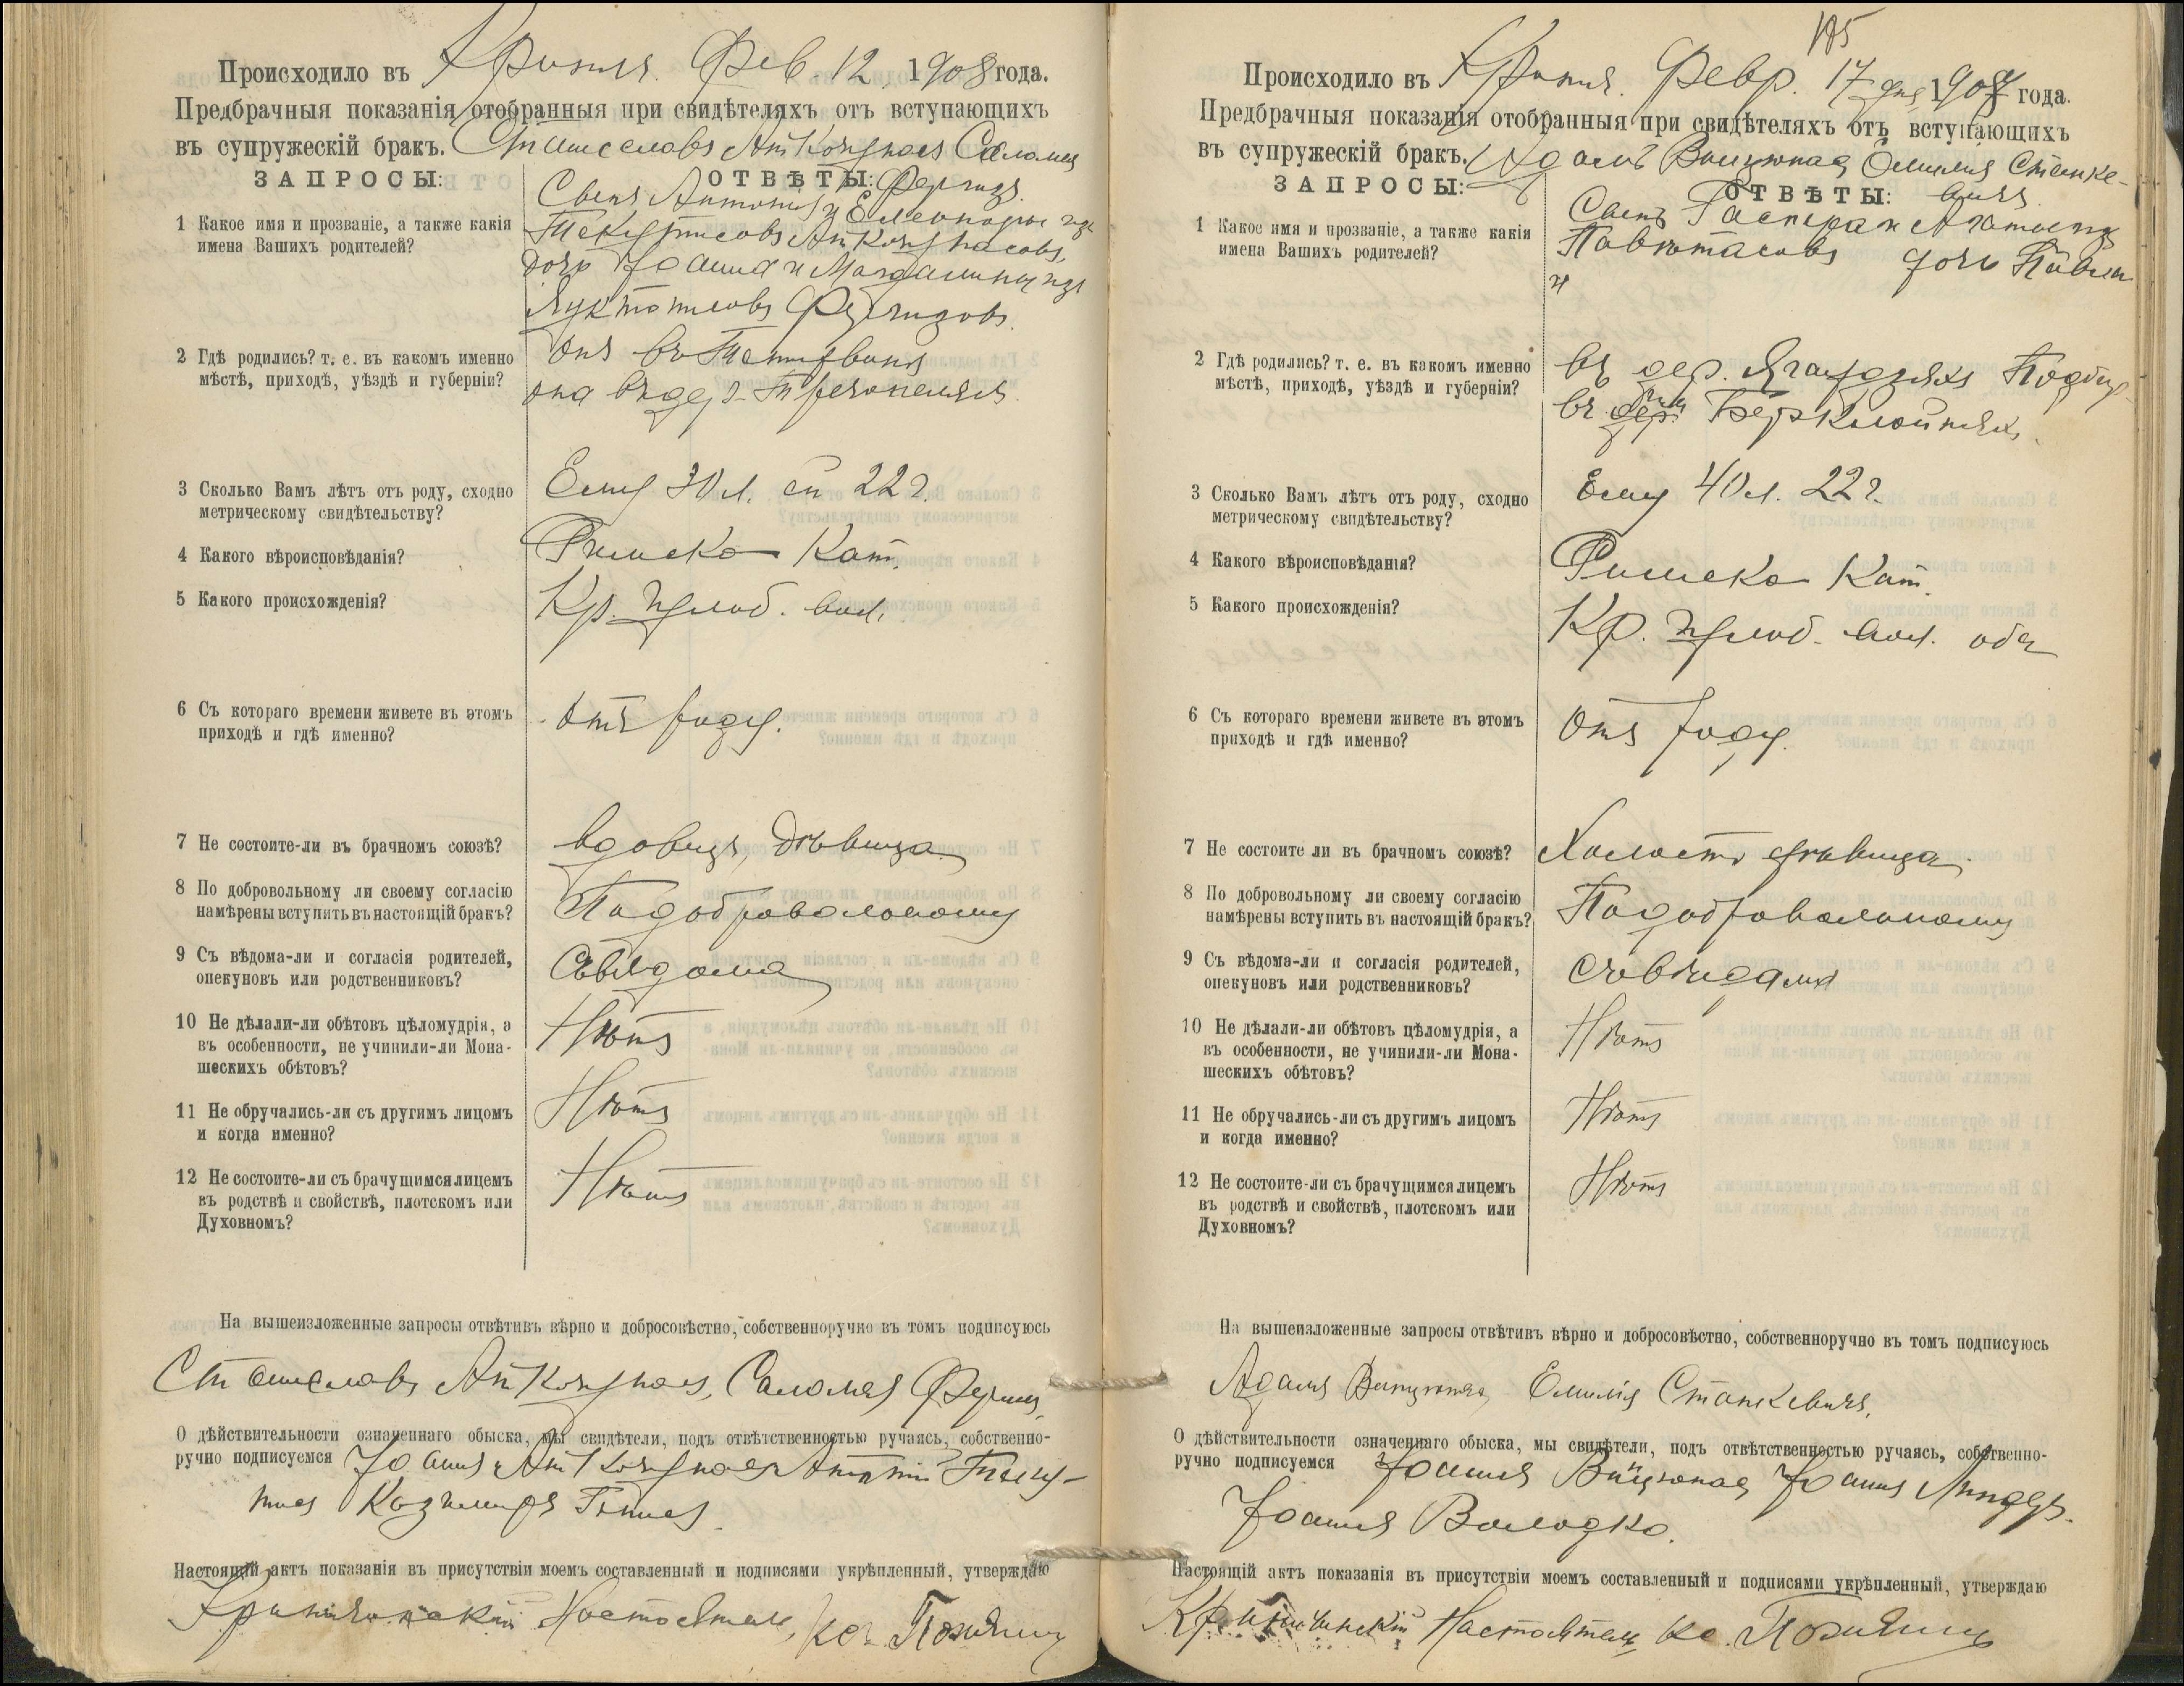 Происходило въ Крипня. Фев. 12, 1908 года.
Предбрачныя показанія отобранныя при свидѣтеляхъ отъ вступающихъ
въ супружескій бракъ. Станиславъ Саломея
ЗАПРОСЫ: ОТВѢТЫ:
1 Какое имя и прозваніе, а также какія
имена Вашихъ родителей?
Сынъ Антонія и Елеоноры изъ
дочь Іоанна и Магдалины изъ
2 Гдѣ родились? т. е. въ какомъ именно
мѣстѣ, приходѣ, уѣздѣ и губерніи?
Онъ въ
она въ дер.
3 Сколько Вамъ лѣтъ отъ роду, сходно
метрическому свидѣтельству?
Ему 30 л. ей 22 г.
4 Какого вѣроисповѣданія?
Римско Кат.
5 Какого происхожденія?
Кр. вол.
6 Съ котораго времени живете въ этомъ
приходѣ и гдѣ именно?
Отъ роду.
7 Не состоите-ли въ брачномъ союзѣ?
вдовецъ, дѣвица
8 По добровольному ли своему согласію
намѣрены вступить въ настоящій бракъ?
По добровольному
9 Съ вѣдома-ли и согласія родителей,
опекуновъ или родственниковъ?
Съ вѣдома
10 Не дѣлали-ли обѣтовъ цѣломудрія, а
въ особенности, не учинили-ли Мона-
шескихъ обѣтовъ?
Нѣтъ
11 Не обручались-ли съ другимъ лицомъ
и когда именно?
Нѣтъ
12 Не состоите-ли съ брачущимся лицемъ
въ родствѣ и свойствѣ, плотскомъ или
Духовномъ?
Нѣтъ
На вышеизложенные запросы отвѣтивъ вѣрно и добросовѣстно, собственноручно въ томъ подписуюсь
Станиславъ Саломея
О дѣйствительности означеннаго обыска, мы свидѣтели, подъ отвѣтственностью ручаясь, собственно-
ручно подписуемся Іоаннъ Антоній
Казимиръ
Настоящій актъ показанія въ присутствіи моемъ составленный и подписями укрѣпленный, утверждаю
Настоятель
Происходило въ Февр. 17 дня 1908 года.
Предбрачныя показанія отобранныя при свидѣтеляхъ отъ вступающихъ
въ супружескій бракъ. Адамъ Емилія Станке-
вичъ
ЗАПРОСЫ: ОТВѢТЫ:
1 Какое имя и прозваніе, а также какія
имена Вашихъ родителей?
Сынъ Гаспера и Агаты изъ
дочь Павла
и
2 Гдѣ родились? т. е. въ какомъ именно
мѣстѣ, приходѣ, уѣздѣ и губерніи?
въ дер.
въ
3 Сколько Вамъ лѣтъ отъ роду, сходно
метрическому свидѣтельству?
Ему 40 л. 22 г.
4 Какого вѣроисповѣданія?
Римско Кат.
5 Какого происхожденія?
Кр. вол. оба
6 Съ котораго времени живете въ этомъ
приходѣ и гдѣ именно?
Отъ роду.
7 Не состоите ли въ брачномъ союзѣ?
Холостъ дѣвица
8 По добровольному ли своему согласію
намѣрены вступить въ настоящій бракъ?
По добровольному
9 Съ вѣдома-ли и согласія родителей,
опекуновъ или родственниковъ?
Съ вѣдома
10 Не дѣлали-ли обѣтовъ цѣломудрія, а
въ особенности, не учинили-ли Мона-
шескихъ обѣтовъ?
Нѣтъ
11 Не обручались-ли съ другимъ лицомъ
и когда именно?
Нѣтъ
12 Не состоите-ли съ брачущимся лицемъ
въ родствѣ и свойствѣ, плотскомъ или
Духовномъ?
Нѣтъ
На вышеизложенные запросы отвѣтивъ вѣрно и добросовѣстно, собственноручно въ томъ подписуюсь
Адамъ Емилія Станкевичъ.
О дѣйствительности означеннаго обыска, мы свидѣтели, подъ отвѣтственностью ручаясь, собственно-
ручно подписуемся Іоаннъ Іоаннъ
Іоаннъ Володко.
Настоящій актъ показанія въ присутствіи моемъ составленный и подписями укрѣпленный, утверждаю
Настоятель